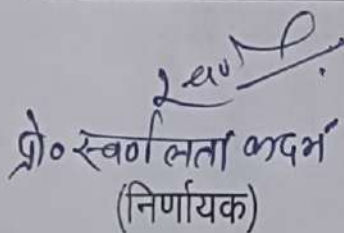 प्रो० स्वर्णलता कदम
(निर्णायक)